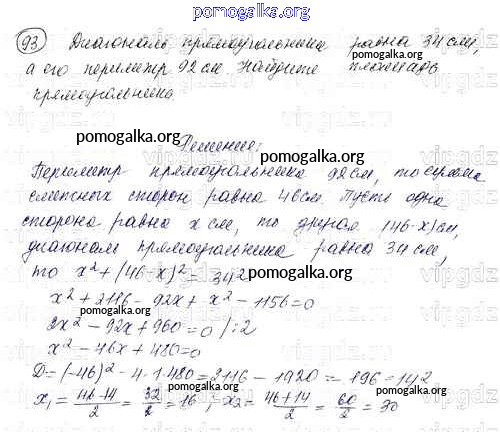 pomogalka.org
93 Диагональ прямоугольника равна 34 см,
а его периметр 92 см. Найдите площадь
прямоугольника.
pomogalka.org
Решение:
pomogalka.org
Периметр прямоугольника 92 см, то сумма
смежных сторон равна 46 см. Пусть одна
сторона равна x см, то другая (46-x) см,
диагональ прямоугольника равна 34 см,
то x² + (46-x)² = 34²
pomogalka.org
x² + 2116 - 92x + x² - 1156 = 0
2x² - 92x + 960 = 0 /:2
x² - 46x + 480 = 0
pomogalka.org
D = (-46)² - 4·1·480 = 2116 - 1920 = 196 = 14²
x₁ = (46-14)/2 = 32/2 = 16 ; x₂ = (46+14)/2 = 60/2 = 30
pomogalka.org